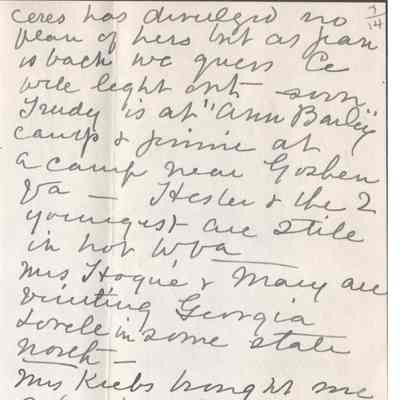 Ceres has divulged no 7/14
plan of hers but as Jean
is back we guess Ce
will light out - soon
Trudy is at "Ann Bailey"
camp & Jinnie at
a camp near Goshen
Va — Hester & the 2
youngest are still
in hot W.Va
Mrs Hogue & Mary are
visiting Georgia
Lovele in some state
north —
Mrs Krebs brought me